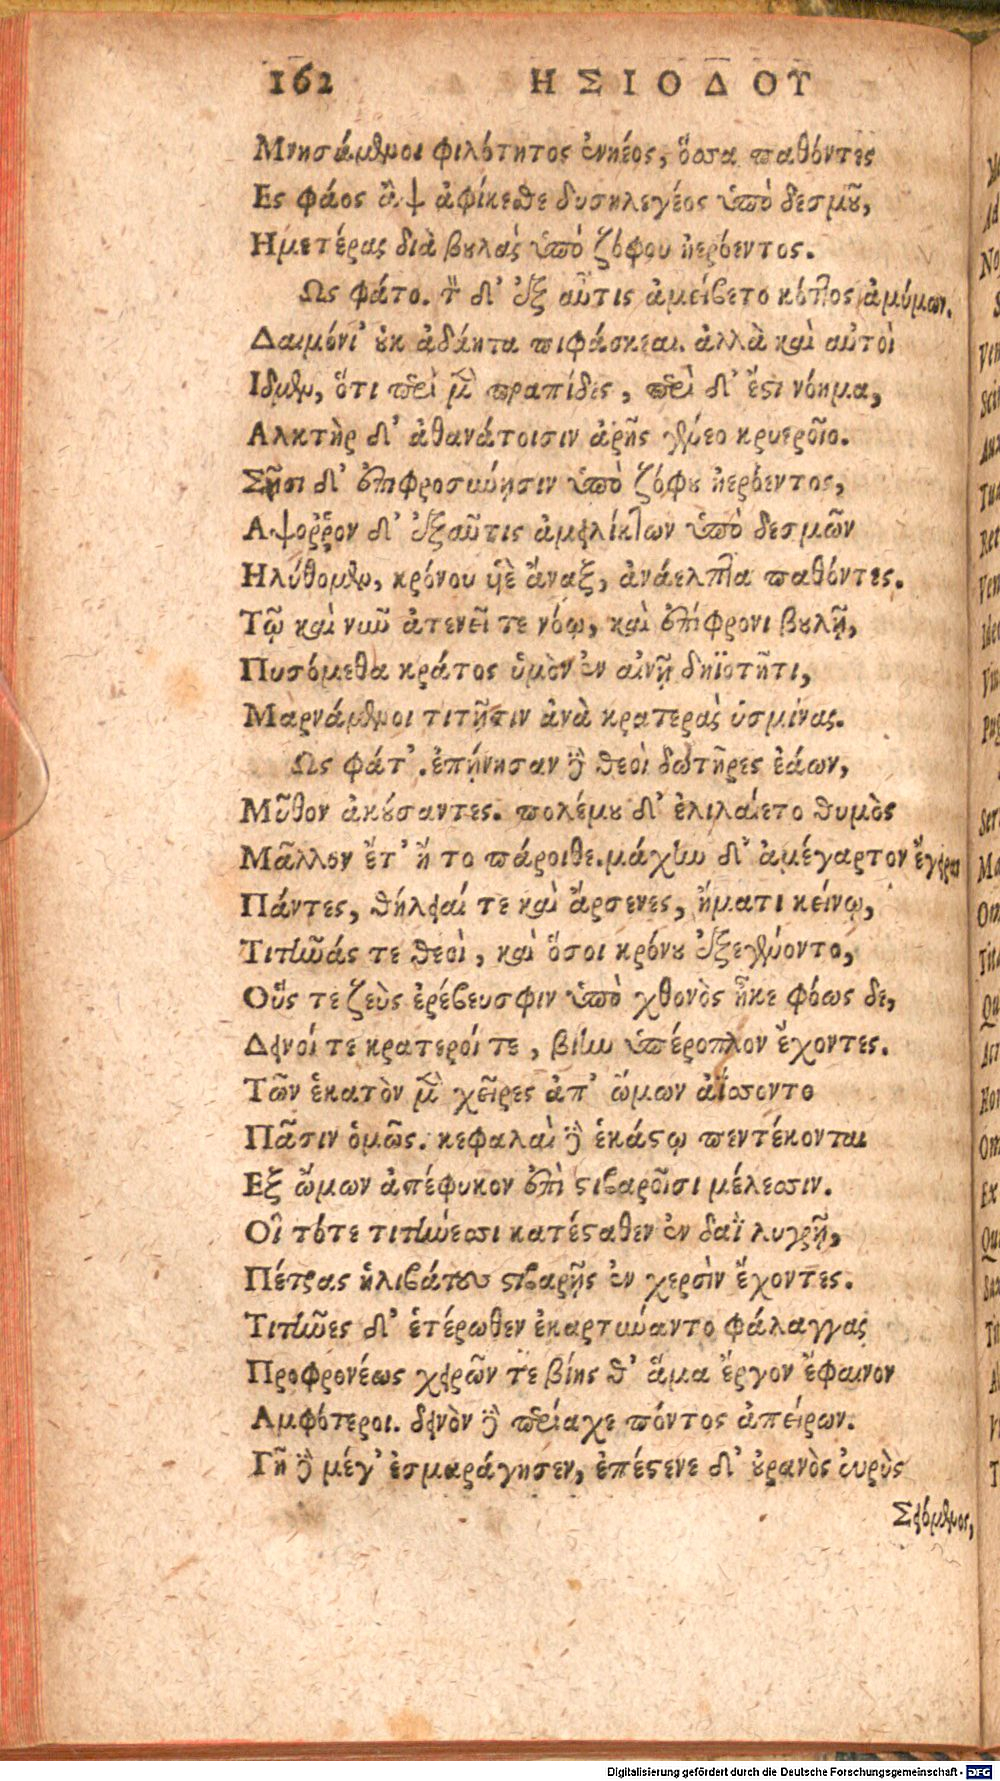 162 ΗΣΙΟΔΟΥ
Μνησάμενοι φιλότητος ἐνηέος, ὅσσα παθόντες
Ες φάος ἂψ ἀφίκεσθε δυσηλεγέος ὑπὸ δεσμοῦ,
Ημετέρας διὰ βουλὰς ὑπὸ ζόφου ἠερόεντος.
Ως φάτο. τὸν δ' ἐξ αὖτις ἀμείβετο κόττος ἀμύμων.
Δαιμόνι' οὐκ ἀδάητα πιφάσκεαι. ἀλλὰ καὶ αὐτοὶ
Ιδμεν, ὅτι περὶ μὲν πραπίδες, περὶ δ' ἔστι νόημα,
Αλκτὴρ δ' ἀθανάτοισιν ἀρῆς γένεο κρυεροῖο.
Σῇσι δ' ἐπιφροσύνῃσιν ὑπὸ ζόφου ἠερόεντος,
Αψοῤῥον δ' ἐξαῦτις ἀμειλίκτων ὑπὸ δεσμῶν
Ηλύθομεν, κρόνου υἱὲ ἄναξ, ἀνάελπτα παθόντες.
Τῷ καὶ νῦν ἀτενεῖ τε νόῳ, καὶ ἐπίφρονι βουλῇ,
Πυσόμεθα κράτος ὑμὸν ἐν αἰνῇ δηϊοτῆτι,
Μαρνάμενοι τιτῆσιν ἀνὰ κρατερὰς ὑσμίνας.
Ως φάτ'. ἐπῄνησαν δὲ θεοὶ δωτῆρες ἐάων,
Μῦθον ἀκούσαντες. πολέμου δ' ἐλιλαίετο θυμὸς
Μᾶλλον ἔτ' ἢ το πάροιθε. μάχην δ' ἀμέγαρτον ἔγειραν
Πάντες, θήλειαί τε καὶ ἄρσενες, ἤματι κείνῳ,
Τιτῆνάς τε θεοὶ, καὶ ὅσοι κρόνου ἐξεγένοντο,
Οὕς τε ζεὺς ἐρέβευσφιν ὑπὸ χθονὸς ἧκε φόως δε,
Δεινοί τε κρατεροί τε, βίην ὑπέροπλον ἔχοντες.
Τῶν ἑκατὸν μὲν χεῖρες ἀπ' ὤμων ἀΐσσοντο
Πᾶσιν ὁμῶς. κεφαλαὶ δὲ ἑκάστῳ πεντέκονται
Εξ ὤμων ἀπέφυκον ἐπὶ στιβαροῖσι μέλεσσιν.
Οἳ τότε τιτήνεσσι κατέσταθεν ἐν δαῒ λυγρῇ,
Πέτρας ἠλιβάτους στιβαρῇς ἐν χερσὶν ἔχοντες.
Τιτῆνες δ' ἑτέρωθεν ἐκαρτύναντο φάλαγγας
Προφρονέως χειρῶν τε βίης θ' ἅμα ἔργον ἔφαινον
Αμφότεροι. δεινὸν δὲ περίαχε πόντος ἀπείρων.
Γῆ δὲ μέγ' ἐσμαράγησεν, ἐπέστενε δ' οὐρανὸς εὐρὺς
Σειόμενος,
Digitalisierung gefördert durch die Deutsche Forschungsgemeinschaft - DFG